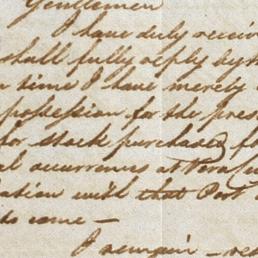 Gentlemen
I have duly receiv
shall fully reply by th
n time I have merely
possession for the pres
for stock purchased fo
al occurrences at Vera Cr
ation with that Port
to come —
I remain — res